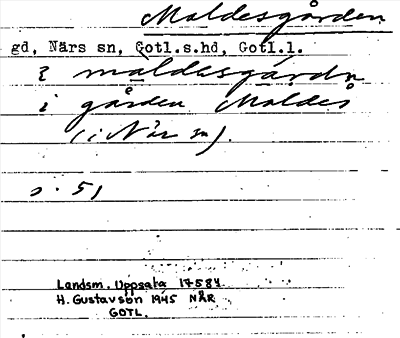 Maldesgården
gd, Närs sn, Gotl.s.hd, Gotl.l.
maldesgårdn
i gården Maldes
(i När sn).
s. 51
Landsm. Uppsala 17584
H. Gustavson 1945 NÄR
GOTL.